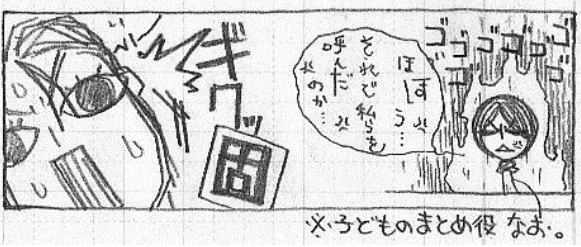 ゴゴゴゴゴゴゴゴ
それで私らを
呼んだ
のか…
ギクッ
※子どものまとめ役 なお。